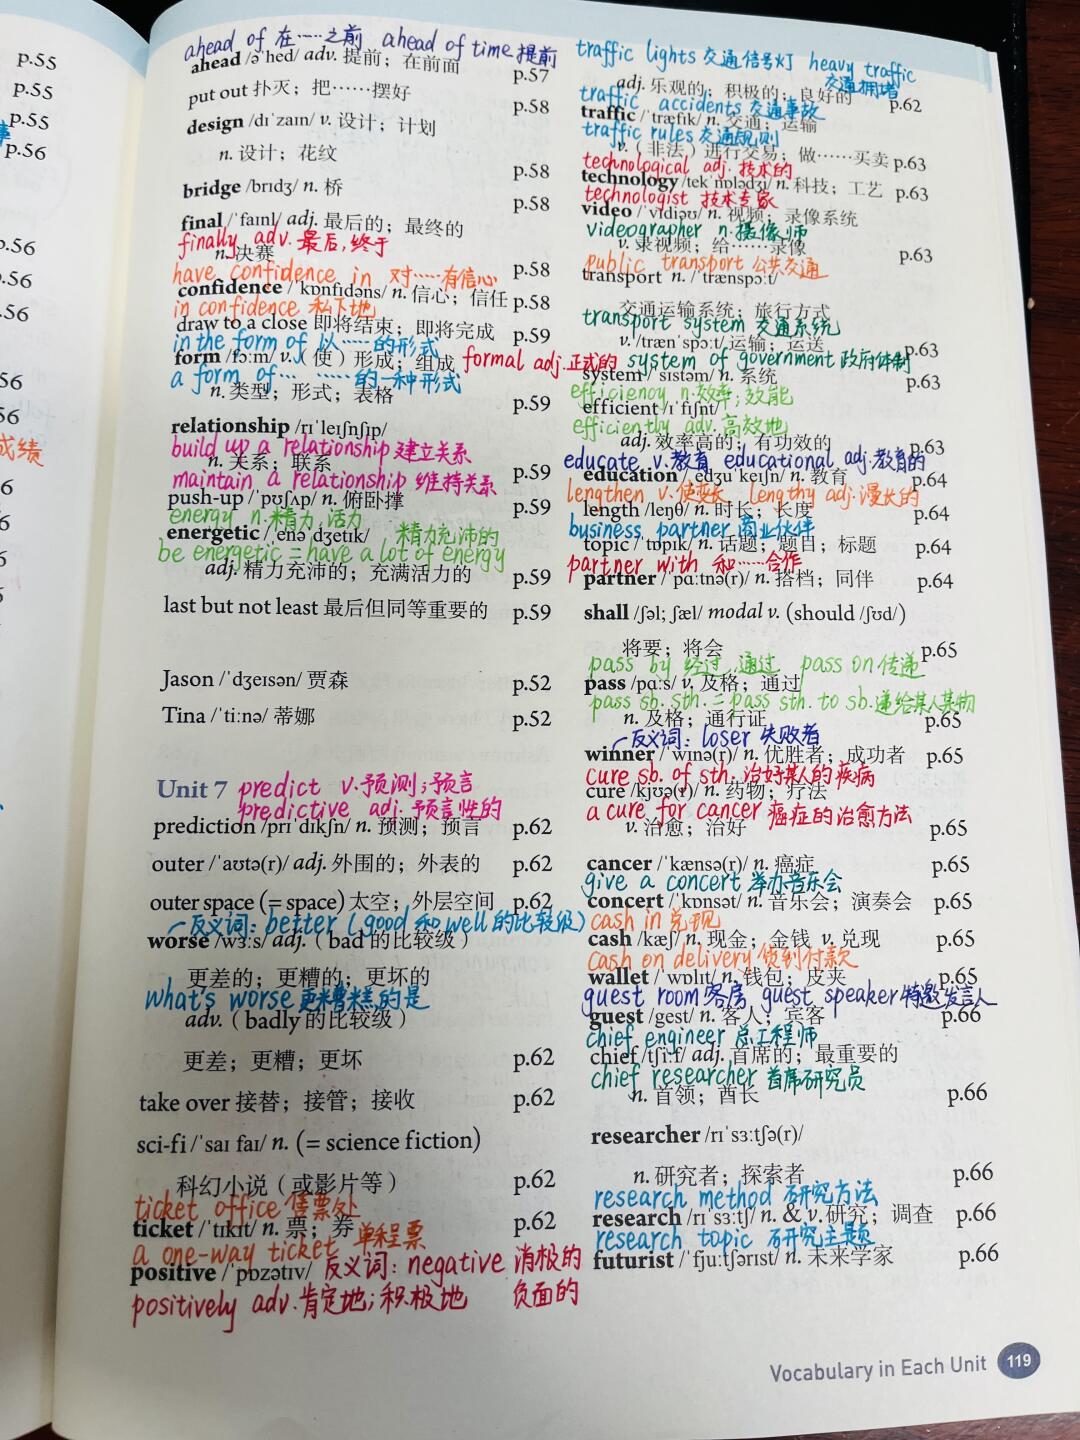 p.55
p.55
p.55
p.56
p.56
成绩
ahead of 在……之前 ahead of time 提前
ahead /əˈhed/ adv. 提前；在前面 p.57
put out 扑灭；把……摆好 p.58
design /dɪˈzaɪn/ v. 设计；计划
n. 设计；花纹 p.58
bridge /brɪdʒ/ n. 桥 p.58
final /ˈfaɪnl/ adj. 最后的；最终的
finally adv. 最后，终于
n. 决赛 p.58
have confidence in 对……有信心
confidence /ˈkɒnfɪdəns/ n. 信心；信任 p.58
in confidence 私下地
draw to a close 即将结束；即将完成 p.59
in the form of 以……的形式
form /fɔːm/ v.（使）形成；组成 formal adj. 正式的
a form of… ……的一种形式
n. 类型；形式；表格 p.59
relationship /rɪˈleɪʃnʃɪp/
build up a relationship 建立关系
n. 关系；联系 p.59
maintain a relationship 维持关系
push-up /ˈpʊʃʌp/ n. 俯卧撑 p.59
energy n. 精力，活力
energetic /ˌenəˈdʒetɪk/ 精力充沛的
be energetic = have a lot of energy
adj. 精力充沛的；充满活力的 p.59
last but not least 最后但同等重要的 p.59
Jason /ˈdʒeɪsən/ 贾森 p.52
Tina /ˈtiːnə/ 蒂娜 p.52
Unit 7 predict v. 预测；预言
predictive adj. 预言性的
prediction /prɪˈdɪkʃn/ n. 预测；预言 p.62
outer /ˈaʊtə(r)/ adj. 外围的；外表的 p.62
outer space (= space) 太空；外层空间 p.62
反义词：better (good 和 well 的比较级)
worse /wɜːs/ adj.（bad 的比较级）
更差的；更糟的；更坏的
what's worse 更糟糕的是
adv.（badly 的比较级）
更差；更糟；更坏 p.62
take over 接替；接管；接收 p.62
sci-fi /ˈsaɪ faɪ/ n. (= science fiction)
科幻小说（或影片等） p.62
ticket office 售票处
ticket /ˈtɪkɪt/ n. 票；券 p.62
a one-way ticket 单程票
positive /ˈpɒzətɪv/ 反义词：negative 消极的
positively adv. 肯定地；积极地 负面的
traffic lights 交通信号灯 heavy traffic
交通拥堵
adj. 乐观的；积极的；良好的 p.62
traffic accidents 交通事故
traffic /ˈtræfɪk/ n. 交通；运输
traffic rules 交通规则
v.（非法）进行交易；做……买卖 p.63
technological adj. 技术的
technology /tekˈnɒlədʒi/ n. 科技；工艺 p.63
technologist 技术专家
video /ˈvɪdiəʊ/ n. 视频；录像系统
videographer n. 摄像师
v. 录视频；给……录像 p.63
public transport 公共交通
transport n. /ˈtrænspɔːt/
交通运输系统；旅行方式
transport system 交通系统
v. /trænˈspɔːt/ 运输；运送 p.63
system of government 政府体制
system /ˈsɪstəm/ n. 系统 p.63
efficiency n. 效率；效能
efficient /ɪˈfɪʃnt/
efficiently adv. 高效地
adj. 效率高的；有功效的 p.63
educate v. 教育 educational adj. 教育的
education /ˌedʒuˈkeɪʃn/ n. 教育 p.64
lengthen v. 使变长 lengthy adj. 漫长的
length /leŋθ/ n. 时长；长度 p.64
business partner 商业伙伴
topic /ˈtɒpɪk/ n. 话题；题目；标题 p.64
partner with 和……合作
partner /ˈpɑːtnə(r)/ n. 搭档；同伴 p.64
shall /ʃəl; ʃæl/ modal v. (should /ʃʊd/)
将要；将会 p.65
pass by 经过，通过 pass on 传递
pass /pɑːs/ v. 及格；通过
pass sb. sth. = pass sth. to sb. 递给某人某物
n. 及格；通行证 p.65
反义词：loser 失败者
winner /ˈwɪnə(r)/ n. 优胜者；成功者 p.65
cure sb. of sth. 治好某人的疾病
cure /kjʊə(r)/ n. 药物；疗法
a cure for cancer 癌症的治愈方法
v. 治愈；治好 p.65
cancer /ˈkænsə(r)/ n. 癌症 p.65
give a concert 举办音乐会
concert /ˈkɒnsət/ n. 音乐会；演奏会 p.65
cash in 兑现
cash /kæʃ/ n. 现金；金钱 v. 兑现 p.65
cash on delivery 货到付款
wallet /ˈwɒlɪt/ n. 钱包；皮夹 p.65
guest room 客房 guest speaker 特邀发言人
guest /gest/ n. 客人；宾客 p.66
chief engineer 总工程师
chief /tʃiːf/ adj. 首席的；最重要的
chief researcher 首席研究员
n. 首领；酋长 p.66
researcher /rɪˈsɜːtʃə(r)/
n. 研究者；探索者 p.66
research method 研究方法
research /rɪˈsɜːtʃ/ n. & v. 研究；调查 p.66
research topic 研究主题
futurist /ˈfjuːtʃərɪst/ n. 未来学家 p.66
Vocabulary in Each Unit 119